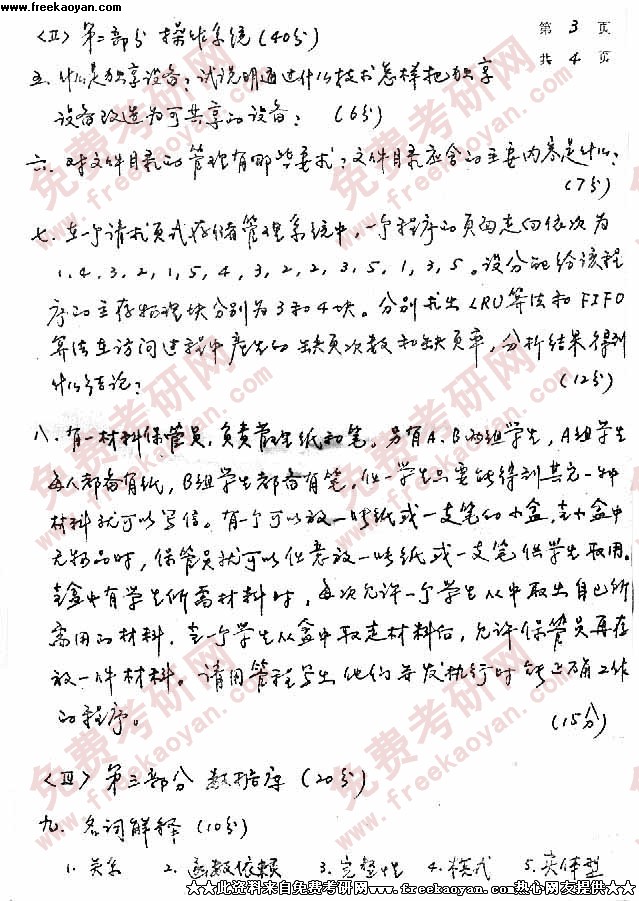 www.freekaoyan.com
第 3 页
共 4 页
<II> 第二部分 操作系统 (40分)
五. 什么是独享设备? 试说明通过什么技术怎样把独享
设备改造为可共享的设备? (6分)
六. 对文件目录的管理有哪些要求? 文件目录应含的主要内容是什么?
(7分)
七. 在一个请求页式存储管理系统中, 一个程序的页面走向依次为
1, 4, 3, 2, 1, 5, 4, 3, 2, 2, 3, 5, 1, 3, 5。设分配给该程
序的主存物理块分别为3和4块。分别求出LRU算法和FIFO
算法在访问过程中产生的缺页次数和缺页率, 分析结果得到
什么结论? (12分)
八. 有一材料保管员, 负责管理纸和笔。另有A.B两组学生, A组学生
每人都备有纸, B组学生都备有笔, 任一学生只要能得到其它一种
材料就可以写信。有一个可以放一张纸或一支笔的小盒, 当小盒中
无物品时, 保管员就可以任意放一张纸或一支笔供学生取用。
当盒中有学生所需材料时, 每次允许一个学生从中取出自己所
需用的材料, 当一个学生从盒中取走材料后, 允许保管员再存
放一件材料。请用管程写出他们并发执行时能正确工作
的程序。 (15分)
<III> 第三部分 数据库 (20分)
九. 名词解释 (10分)
1. 关系 2. 函数依赖 3. 完整性 4. 模式 5. 实体型
★★此资料来自免费考研网www.freekaoyan.com热心网友提供★★
免费考研网
www.freekaoyan.com
免费考研网
www.freekaoyan.com
免费考研网
www.freekaoyan.com
免费考研网
www.freekaoyan.com
免费考研网
www.freekaoyan.com
免费考研网
www.freekaoyan.com